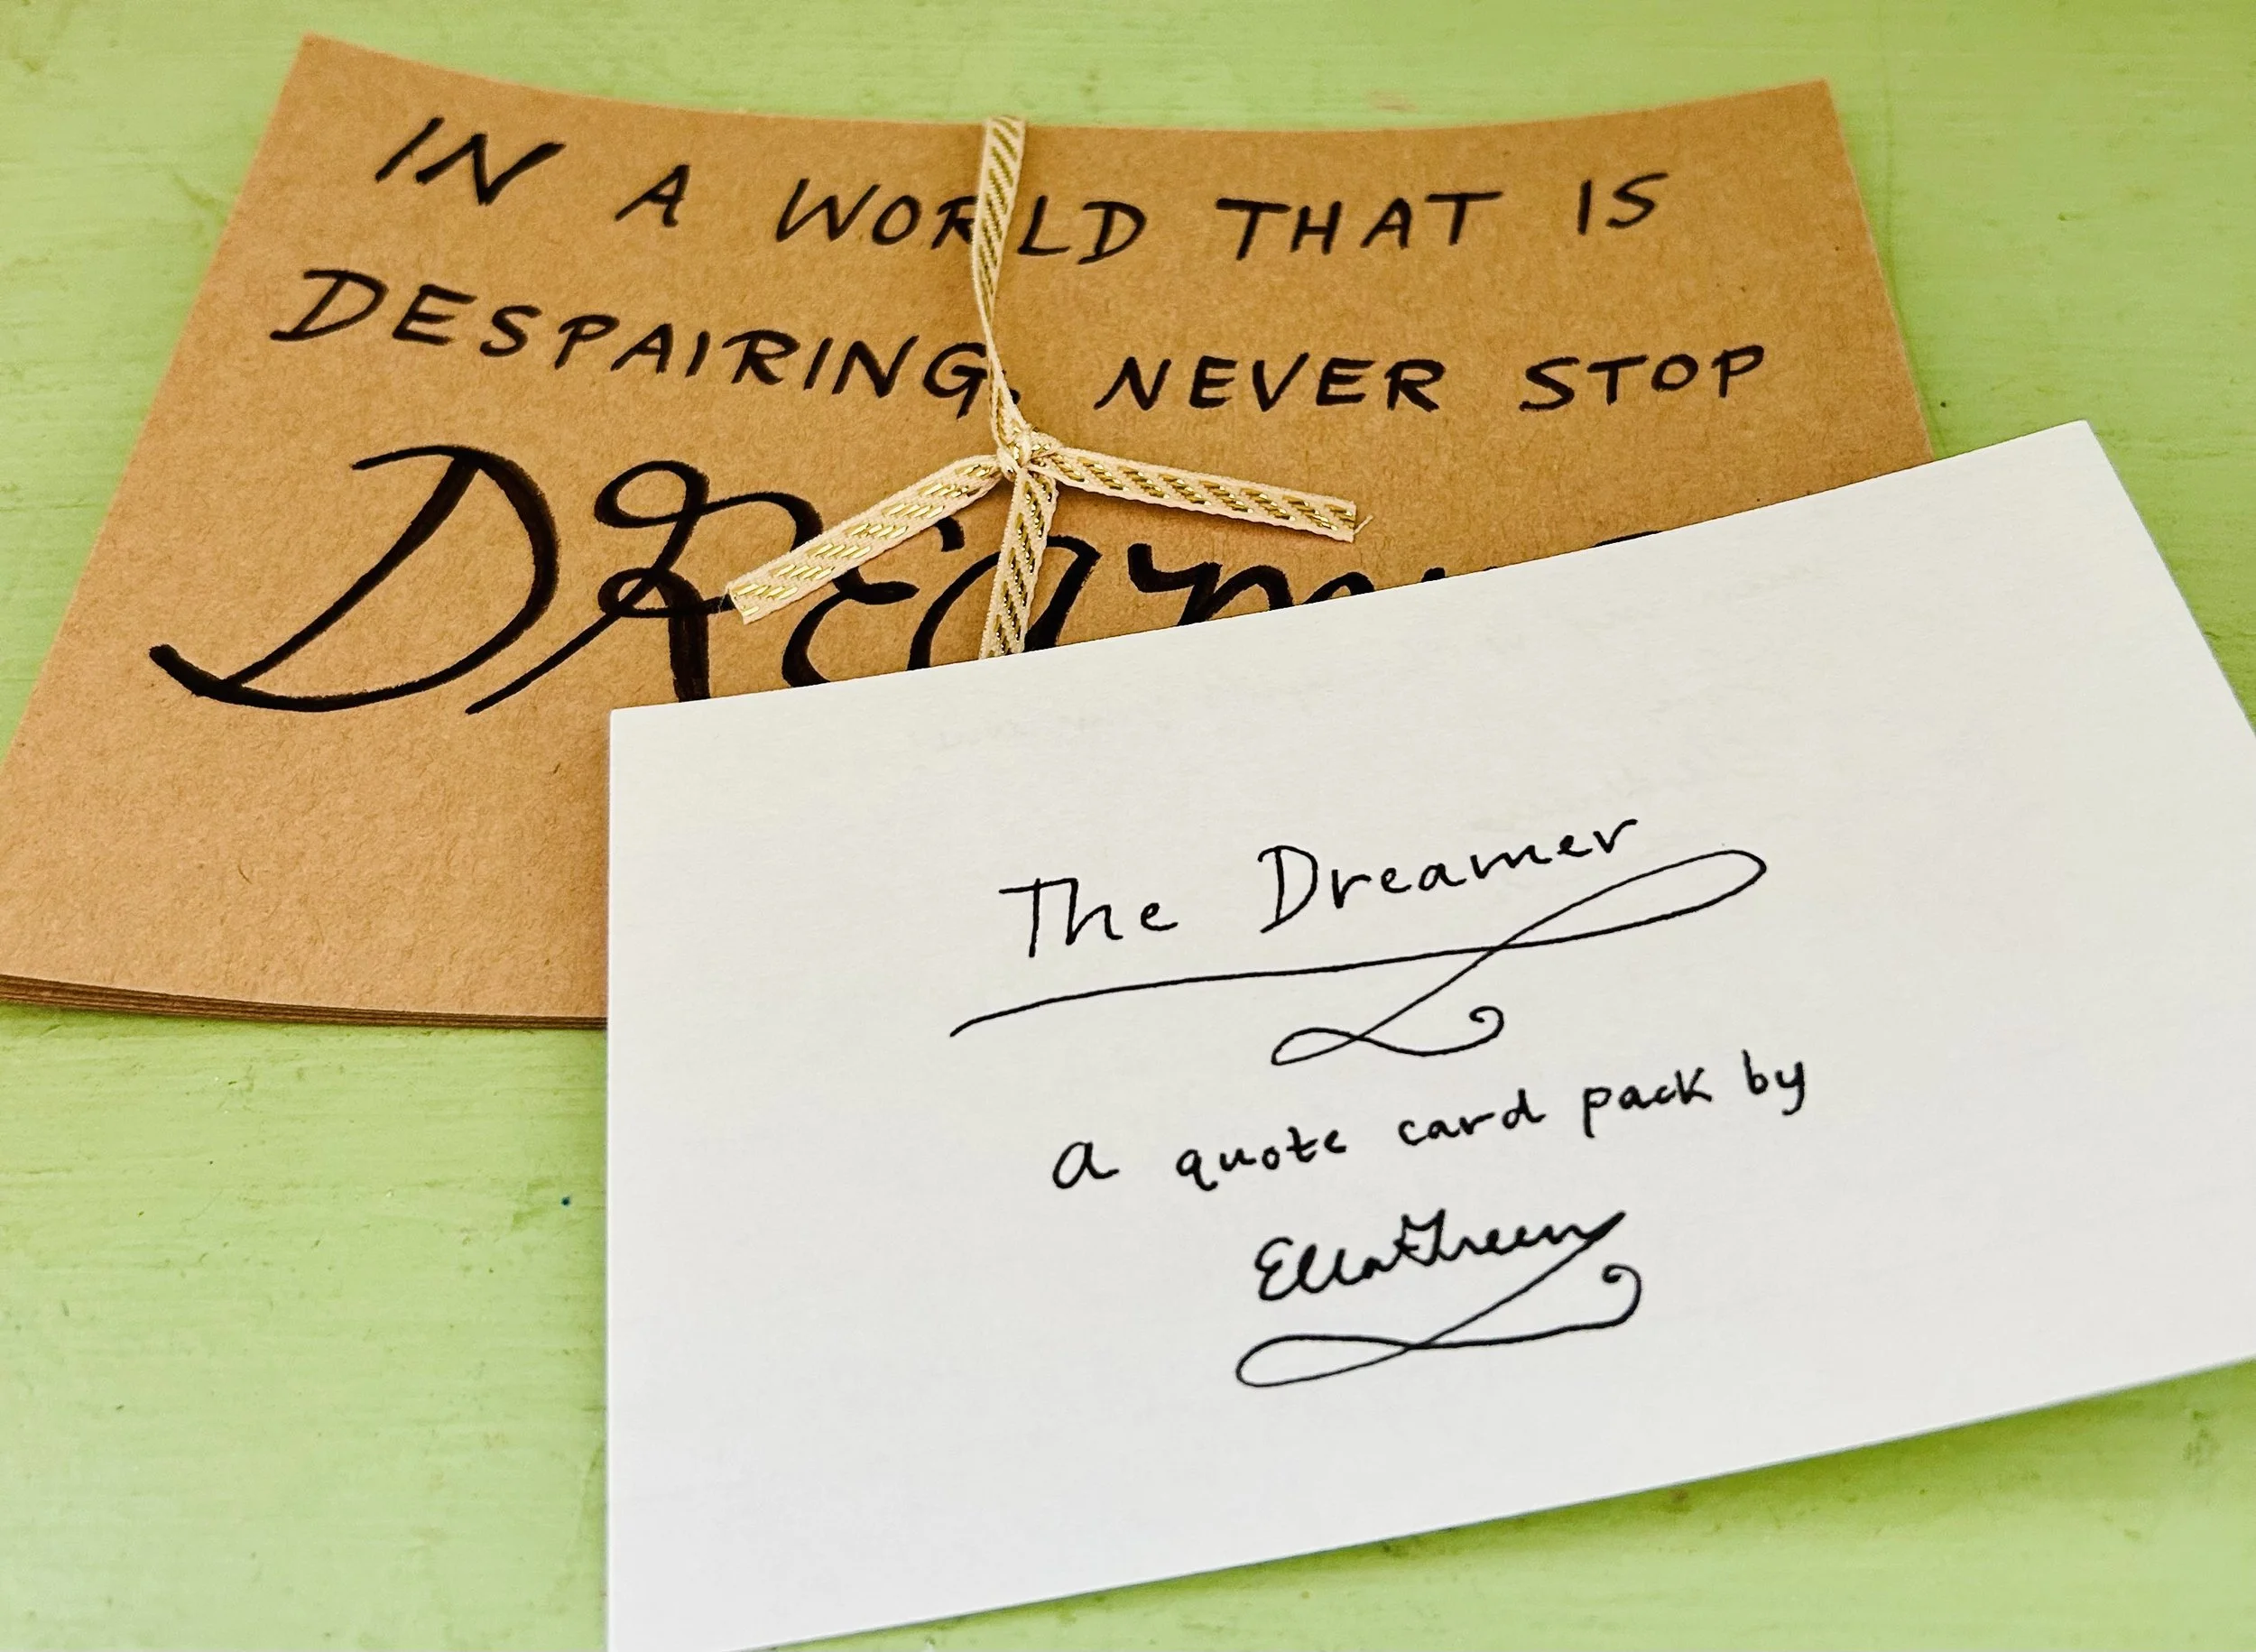 IN A WORLD THAT IS
DESPAIRING, NEVER STOP
DReam
The Dreamer
a quote card pack by
Ella Green